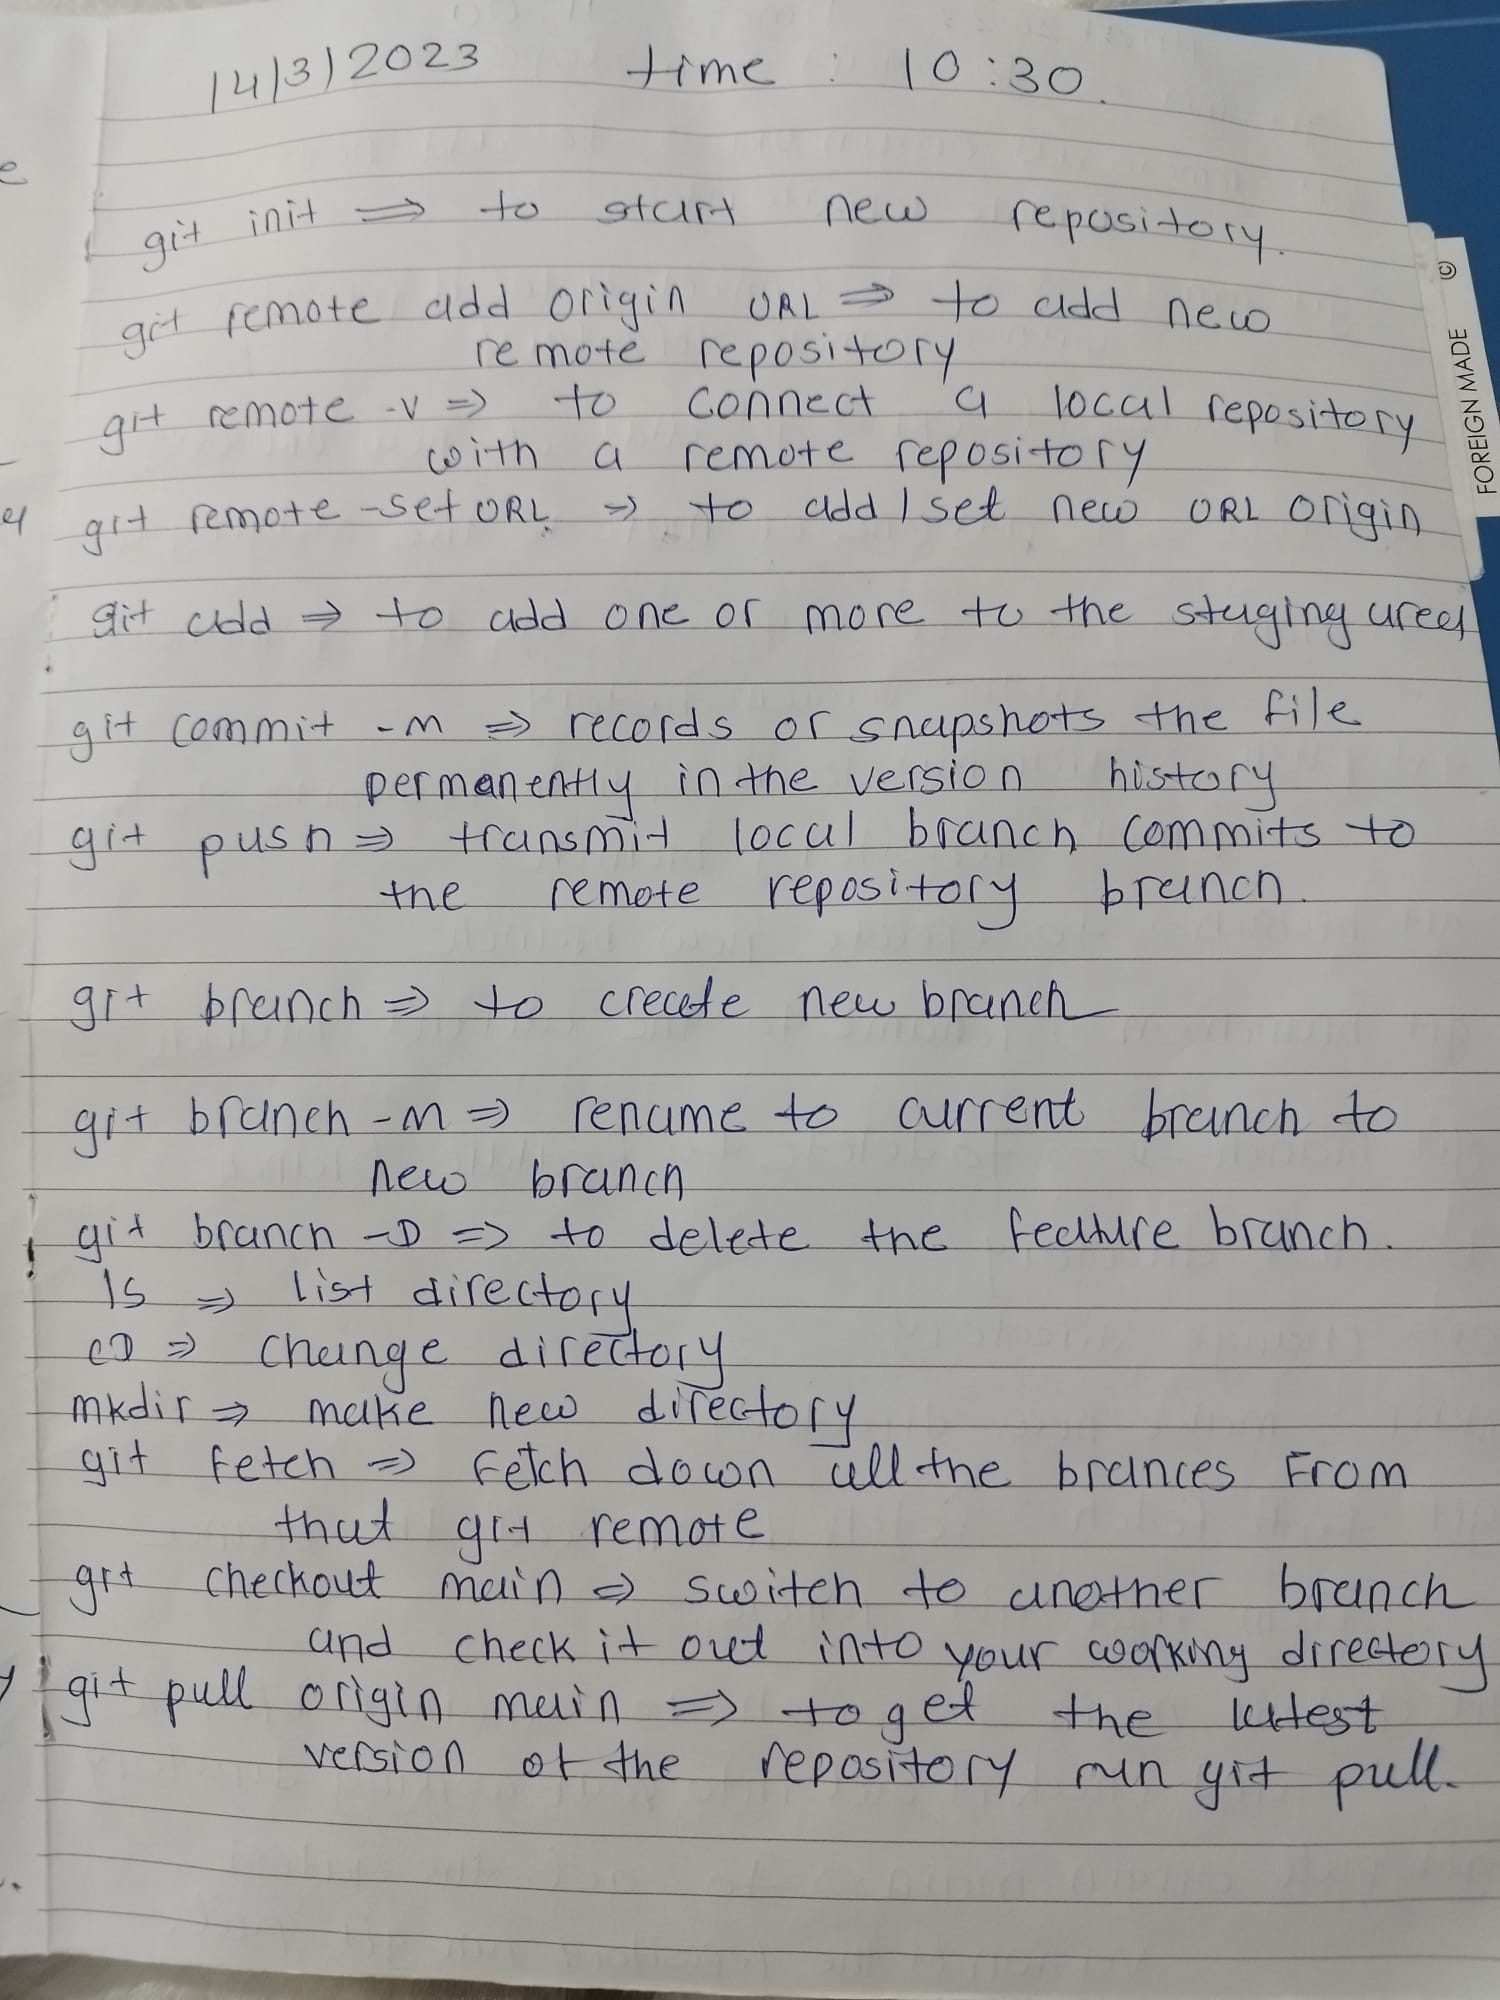 14/3/2023 time : 10:30.
git init => to start new repository.
git remote add origin URL => to add new
remote repository
git remote -v => to connect a local repository
with a remote repository
git remote -set URL => to add/set new URL origin
git add => to add one or more to the staging area
git commit -m => records or snapshots the file
permanently in the version history
git push => transmit local branch commits to
the remote repository branch.
git branch => to create new branch
git branch -m => rename to current branch to
new branch
git branch -D => to delete the feature branch.
ls => list directory
CD => change directory
mkdir => make new directory
git fetch => Fetch down all the brances From
that git remote
git checkout main => switch to another branch
and check it out into your working directory
git pull origin main => to get the latest
version of the repository run git pull.
FOREIGN MADE ©